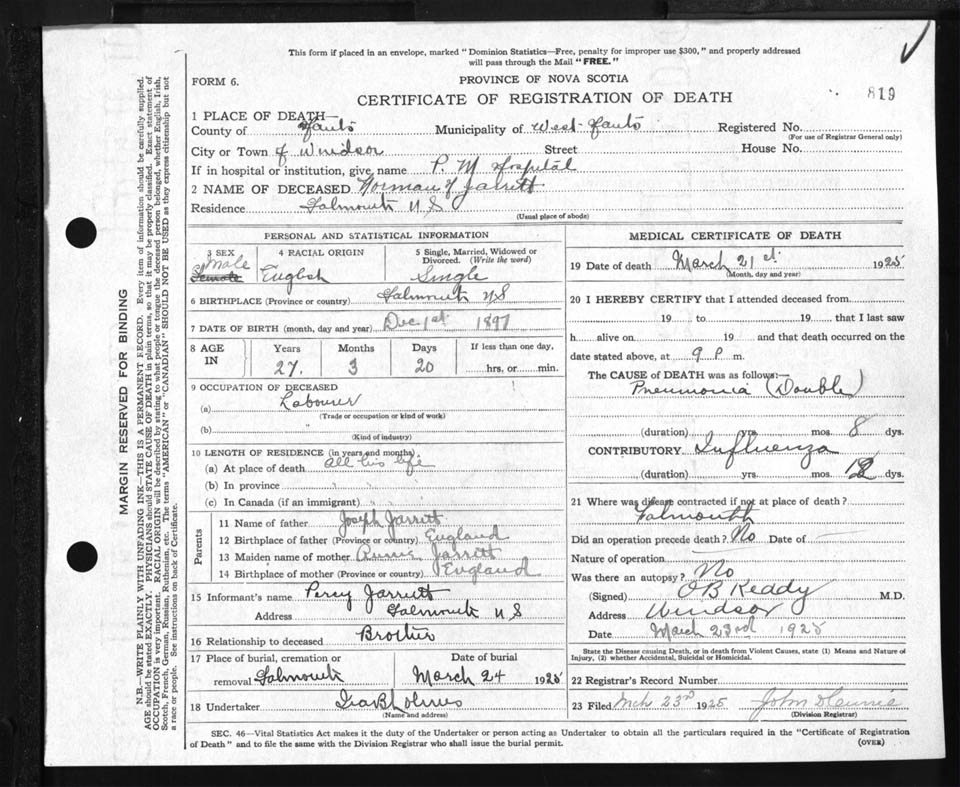 This form if placed in an envelope, marked "Dominion Statistics—Free, penalty for improper use $300," and properly addressed
will pass through the Mail "FREE."
FORM 6.
PROVINCE OF NOVA SCOTIA
CERTIFICATE OF REGISTRATION OF DEATH
819
1 PLACE OF DEATH—
County of Hants Municipality of West Hants Registered No.
(For use of Registrar General only)
City or Town of Windsor Street House No.
If in hospital or institution, give name P. M Hospital
2 NAME OF DECEASED Norman Jarrett
Residence Falmouth N S
(Usual place of abode)
PERSONAL AND STATISTICAL INFORMATION
3 SEX 4 RACIAL ORIGIN 5 Single, Married, Widowed or
Divorced. (Write the word)
Male English Single
6 BIRTHPLACE (Province or country) Falmouth NS
7 DATE OF BIRTH (month, day and year) Dec 1st 1897
8 AGE IN Years Months Days If less than one day,
27 3 20 hrs. or min.
9 OCCUPATION OF DECEASED
(a) Labourer
(Trade or occupation or kind of work)
(b)
(Kind of industry)
10 LENGTH OF RESIDENCE (in years and months)
(a) At place of death all his life
(b) In province
(c) In Canada (if an immigrant)
Parents
11 Name of father Joseph Jarrett
12 Birthplace of father (Province or country) England
13 Maiden name of mother Jarrett
14 Birthplace of mother (Province or country) England
15 Informant's name Percy Jarrett
Address Falmouth N S
16 Relationship to deceased Brother
17 Place of burial, cremation or Date of burial
removal Falmouth March 24 1925
18 Undertaker
(Name and address)
MEDICAL CERTIFICATE OF DEATH
19 Date of death March 21st 1925
(Month, day and year)
20 I HEREBY CERTIFY that I attended deceased from
19 to 19 that I last saw
h alive on 19 and that death occurred on the
date stated above, at 9 P m.
The CAUSE of DEATH was as follows:—
Pneumonia (Double)
(duration) yrs. mos. 8 dys.
CONTRIBUTORY Influenza
(duration) yrs. mos. 12 dys.
21 Where was disease contracted if not at place of death?
Falmouth
Did an operation precede death? No Date of
Nature of operation
Was there an autopsy? No
(Signed) O B Keddy M.D.
Address Windsor
Date March 23rd 1925
State the Disease causing Death, or in death from Violent Causes, state (1) Means and Nature of
Injury, (2) whether Accidental, Suicidal or Homicidal.
22 Registrar's Record Number
23 Filed Mch 23rd 1925 John D
(Division Registrar)
SEC. 46—Vital Statistics Act makes it the duty of the Undertaker or person acting as Undertaker to obtain all the particulars required in the "Certificate of Registration
of Death" and to file the same with the Division Registrar who shall issue the burial permit. (OVER)
MARGIN RESERVED FOR BINDING
N.B.—WRITE PLAINLY WITH UNFADING INK—THIS IS A PERMANENT RECORD. Every item of information should be carefully supplied.
AGE should be stated EXACTLY. PHYSICIANS should STATE CAUSE OF DEATH in plain terms, so that it may be properly classified. Exact statement of
OCCUPATION is very important. RACIAL ORIGIN will be described by stating to what people or tongue the deceased person belonged, whether English, Irish,
Scotch, French, German, Russian, Ruthenian, etc. The terms "AMERICAN" or "CANADIAN" SHOULD NOT BE USED as they express citizenship but not
a race or people. See instructions on back of Certificate.